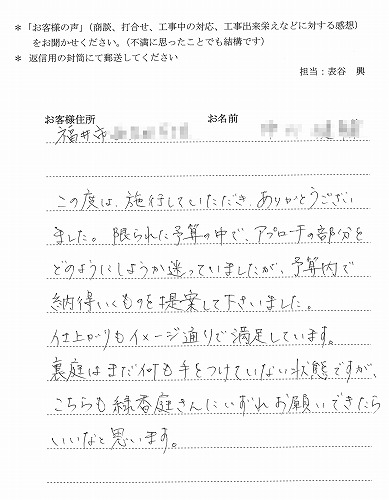 ＊「お客様の声」（商談、打合せ、工事中の対応、工事出来栄えなどに対する感想）
をお聞かせください。（不満に思ったことでも結構です）
＊ 返信用の封筒にて郵送してください
担当：表谷 興
お客様住所 お名前
福井市
この度は、施行していただき、ありがとうござい
ました。限られた予算の中で、アプローチの部分を
どのようにしようか迷っていましたが、予算内で
納得いくものを提案して下さいました。
仕上がりもイメージ通りで満足しています。
裏庭はまだ何も手をつけていない状態ですが、
こちらも緑香庭さんにいずれお願いできたら
いいなと思います。